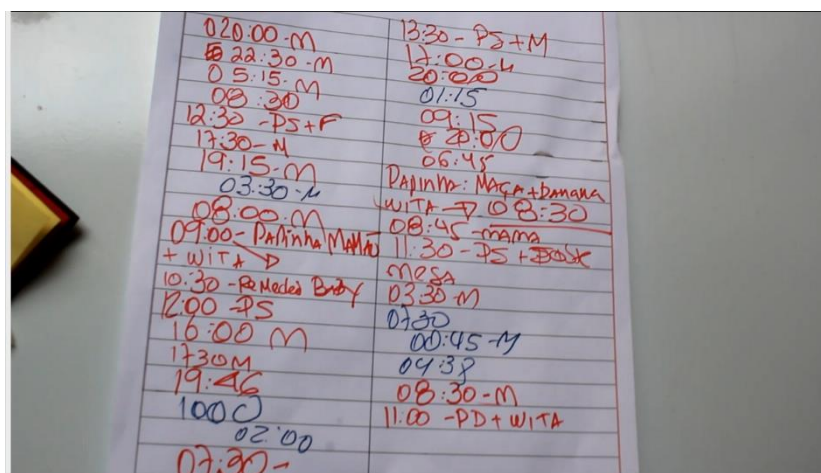 020:00-M
22:30-M
05:15-M
08:30
12:30-PS+F
17:30-M
19:15-M
03:30-M
08:00-M
09:00-PAPinhA MAMÃO
+ WITA
10:30-Remedio Baby
12:00-PS
16:00 M
1730M
19:46
1000
02:00
07:30-
13:30-PS+M
17:00-M
20:00
01:15
09:15
20:00
06:45
PAPinhA: MAÇA+bANANA
WITA → 08:30
08:45-mAmA
11:30-PS +
mesA
03:30-M
0730
00:45-M
04:38
08:30-M
11:00-PD+WITA